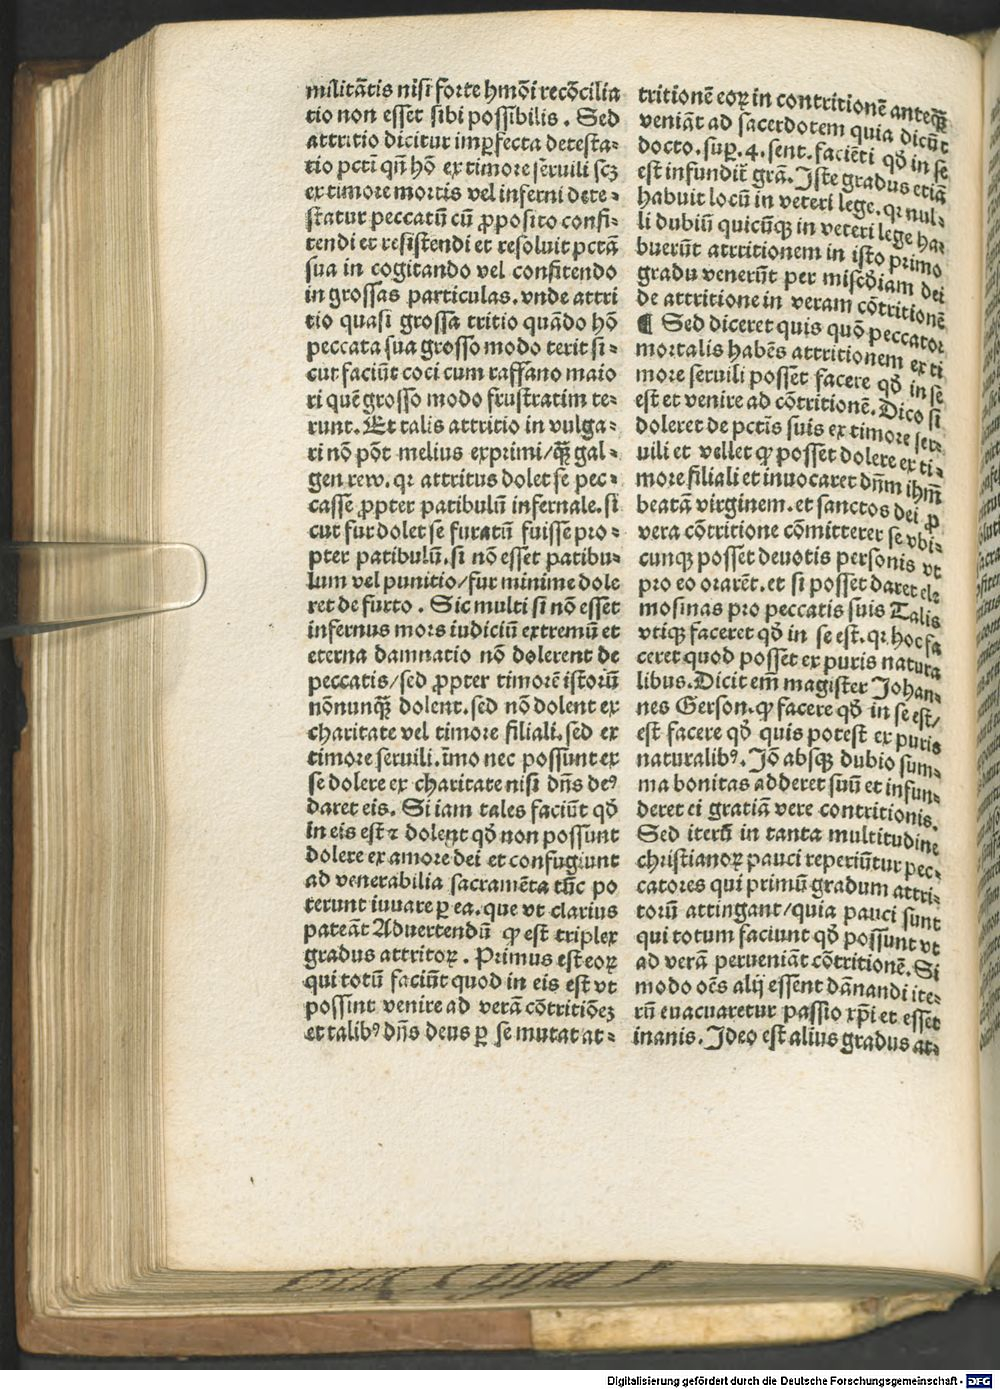 militātis nisi forte hmōi recōcilia
tio non esset sibi possibilis. Sed
attritio dicitur imꝑfecta detesta⸗
tio pctī qn̄ hō ex timore seruili scꝫ
ex timore mortis vel inferni dete⸗
statur peccatū cū ꝓposito confi⸗
tendi et resistendi et resoluit pctā
sua in cogitando vel confitendo
in grossas particulas. vnde attri
tio quasi grossa tritio quādo hō
peccata sua grosso modo terit si⸗
cut faciūt coci cum raffano maio
ri quē grosso modo frustratim te⸗
runt. Et talis attritio in vulga⸗
ri nō pōt melius exprimi/qꝫ̄ gal⸗
gen rew. qꝛ attritus dolet se pec⸗
casse ꝓpter patibulū infernale. si
cut fur dolet se furatū fuisse pro⸗
pter patibulū. si nō esset patibu⸗
lum vel punitio/fur minime dole
ret de furto. Sic multi si nō esset
infernus mors iudiciū extremū et
eterna damnatio nō dolerent de
peccatis/sed ꝓpter timorē istorū
nōnunqꝫ̄ dolent. sed nō dolent ex
charitate vel timore filiali. sed ex
timore seruili. īmo nec possunt ex
se dolere ex charitate nisi dn̄s deꝰ
daret eis. Si iam tales faciūt qd̄
in eis est ⁊ dolent qd̄ non possunt
dolere ex amore dei et confugiunt
ad venerabilia sacramēta tūc po
terunt iuuare ꝑ ea. que vt clarius
pateāt Aduertendū ꝙ est triplex
gradus attritoꝝ. Primus est eoꝝ
qui totū faciūt quod in eis est vt
possint venire ad verā cōtritiōeꝫ
et talibꝰ dn̄s deus ꝑ se mutat at⸗
tritionē eoꝝ in contritionē anteqꝫ̄
veniāt ad sacerdotem quia dicūt
docto. suꝑ. 4. sent. faciēti qd̄ in se
est infundit̄ grā. Iste gradus etiā
habuit locū in veteri lege. qꝛ nul⸗
li dubiū quicūqꝫ in veteri lege ha⸗
buerūt attritionem in isto primo
gradu venerūt per mis̄c̄diam dei
de attritione in veram cōtritionē
¶ Sed diceret quis quō peccator
mortalis habēs attritionem ex ti
more seruili posset facere qd̄ in se
est et venire ad cōtritionē. Dico si
doleret de pctīs suis ex timore ser⸗
uili et vellet ꝙ posset dolere ex ti⸗
more filiali et inuocaret dn̄m ihm̄
beatā virginem. et sanctos dei ꝓ
vera cōtritione cōmitterer se vbi⸗
cunqꝫ posset deuotis personis vt
pro eo orarēt. et si posset daret ele
mosinas pro peccatis suis Talis
vtiqꝫ faceret qd̄ in se est. qꝛ hoc fa
ceret quod posset ex puris natura
libus. Dicit em̄ magister Johan⸗
nes Gerson. ꝙ facere qd̄ in se est/
est facere qd̄ quis potest ex puris
naturalibꝰ. Jō absqꝫ dubio sum⸗
ma bonitas adderet suū et infun⸗
deret ei gratiā vere contritionis.
Sed iterū in tanta multitudine
christianoꝝ pauci reperiūtur pec⸗
catores qui primū gradum attri⸗
torū attingant/quia pauci sunt
qui totum faciunt qd̄ possunt vt
ad verā perueniāt cōtritionē. Si
modo oēs alij essent dānandi ite⸗
rū euacuaretur passio xp̄i et esset
inanis. Ideo est alius gradus at⸗
Digitalisierung gefördert durch die Deutsche Forschungsgemeinschaft - DFG